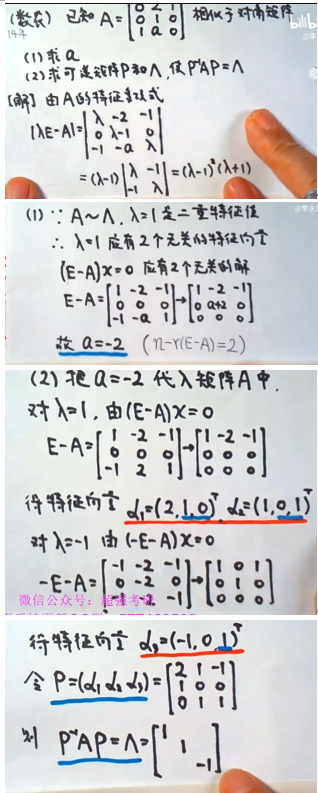 (数农) 已知 A = [0 2 1; 0 1 0; 1 a 0] 相似于对角矩阵
bilibili
14年
(1) 求 a
(2) 求可逆矩阵P和Λ, 使 P⁻¹AP=Λ
[解] 由A的特征多项式
|λE-A| = |λ -2 -1; 0 λ-1 0; -1 -a λ|
= (λ-1) |λ -1; -1 λ| = (λ-1)²(λ+1)
(1) ∵ A~Λ, λ=1是二重特征值
∴ λ=1 应有2个无关的特征向量
(E-A)x=0 应有2个无关的解
E-A = [1 -2 -1; 0 0 0; -1 -a 1] → [1 -2 -1; 0 a+2 0; 0 0 0]
故 a=-2 (n-r(E-A)=2)
(2) 把 a=-2 代入矩阵A中.
对 λ=1, 由 (E-A)x=0
E-A = [1 -2 -1; 0 0 0; -1 2 1] → [1 -2 -1; 0 0 0; 0 0 0]
得特征向量 α₁=(2,1,0)ᵀ, α₂=(1,0,1)ᵀ
对 λ=-1 由 (-E-A)x=0
-E-A = [-1 -2 -1; 0 -2 0; -1 2 -1] → [1 0 1; 0 1 0; 0 0 0]
微信公众号：超强考研
得特征向量 α₃=(-1,0,1)ᵀ
令 P=(α₁ α₂ α₃) = [2 1 -1; 1 0 0; 0 1 1]
则 P⁻¹AP=Λ= [1 1 -1]